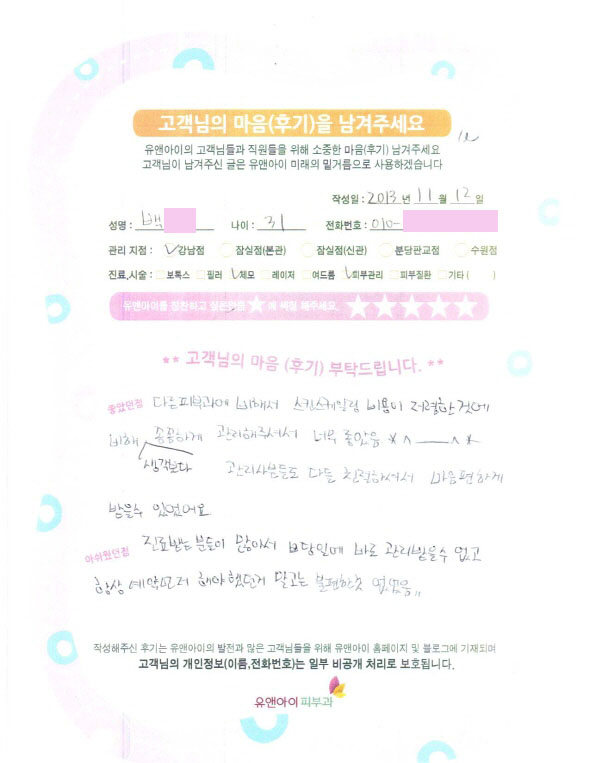 고객님의 마음(후기)을 남겨주세요
유앤아이의 고객님들과 직원들을 위해 소중한 마음(후기) 남겨주세요
고객님이 남겨주신 글은 유앤아이 미래의 밑거름으로 사용하겠습니다
작성일 : 2013 년 11 월 12 일
성명 : 백 나이 : 31 전화번호 : 010-
관리 지점 : 강남점 잠실점(본관) 잠실점(신관) 분당판교점 수원점
진료,시술 : 보톡스 필러 제모 레이저 여드름 피부관리 피부질환 기타 ( )
유앤아이를 칭찬하고 싶은만큼 ★ 에 색칠 해주세요 ★★★★★
** 고객님의 마음 (후기) 부탁드립니다. **
좋았던점 다른피부과에 비해서 스킨스케일링 비용이 저렴한것에
비해 꼼꼼하게 관리해주셔서 너무 좋았음 *^____^*
생각보다 관리사분들도 다들 친절하셔서 마음편하게
받을수 있었어요
아쉬웠던점 진료받는분들이 많아서 당일에 바로 관리받을수 없고
항상 예약먼저 해야했던거 말고는 불편한것 없었음,,
작성해주신 후기는 유앤아이의 발전과 많은 고객님들을 위해 유앤아이 홈페이지 및 블로그에 기재되며
고객님의 개인정보(이름,전화번호)는 일부 비공개 처리로 보호됩니다.
유앤아이피부과